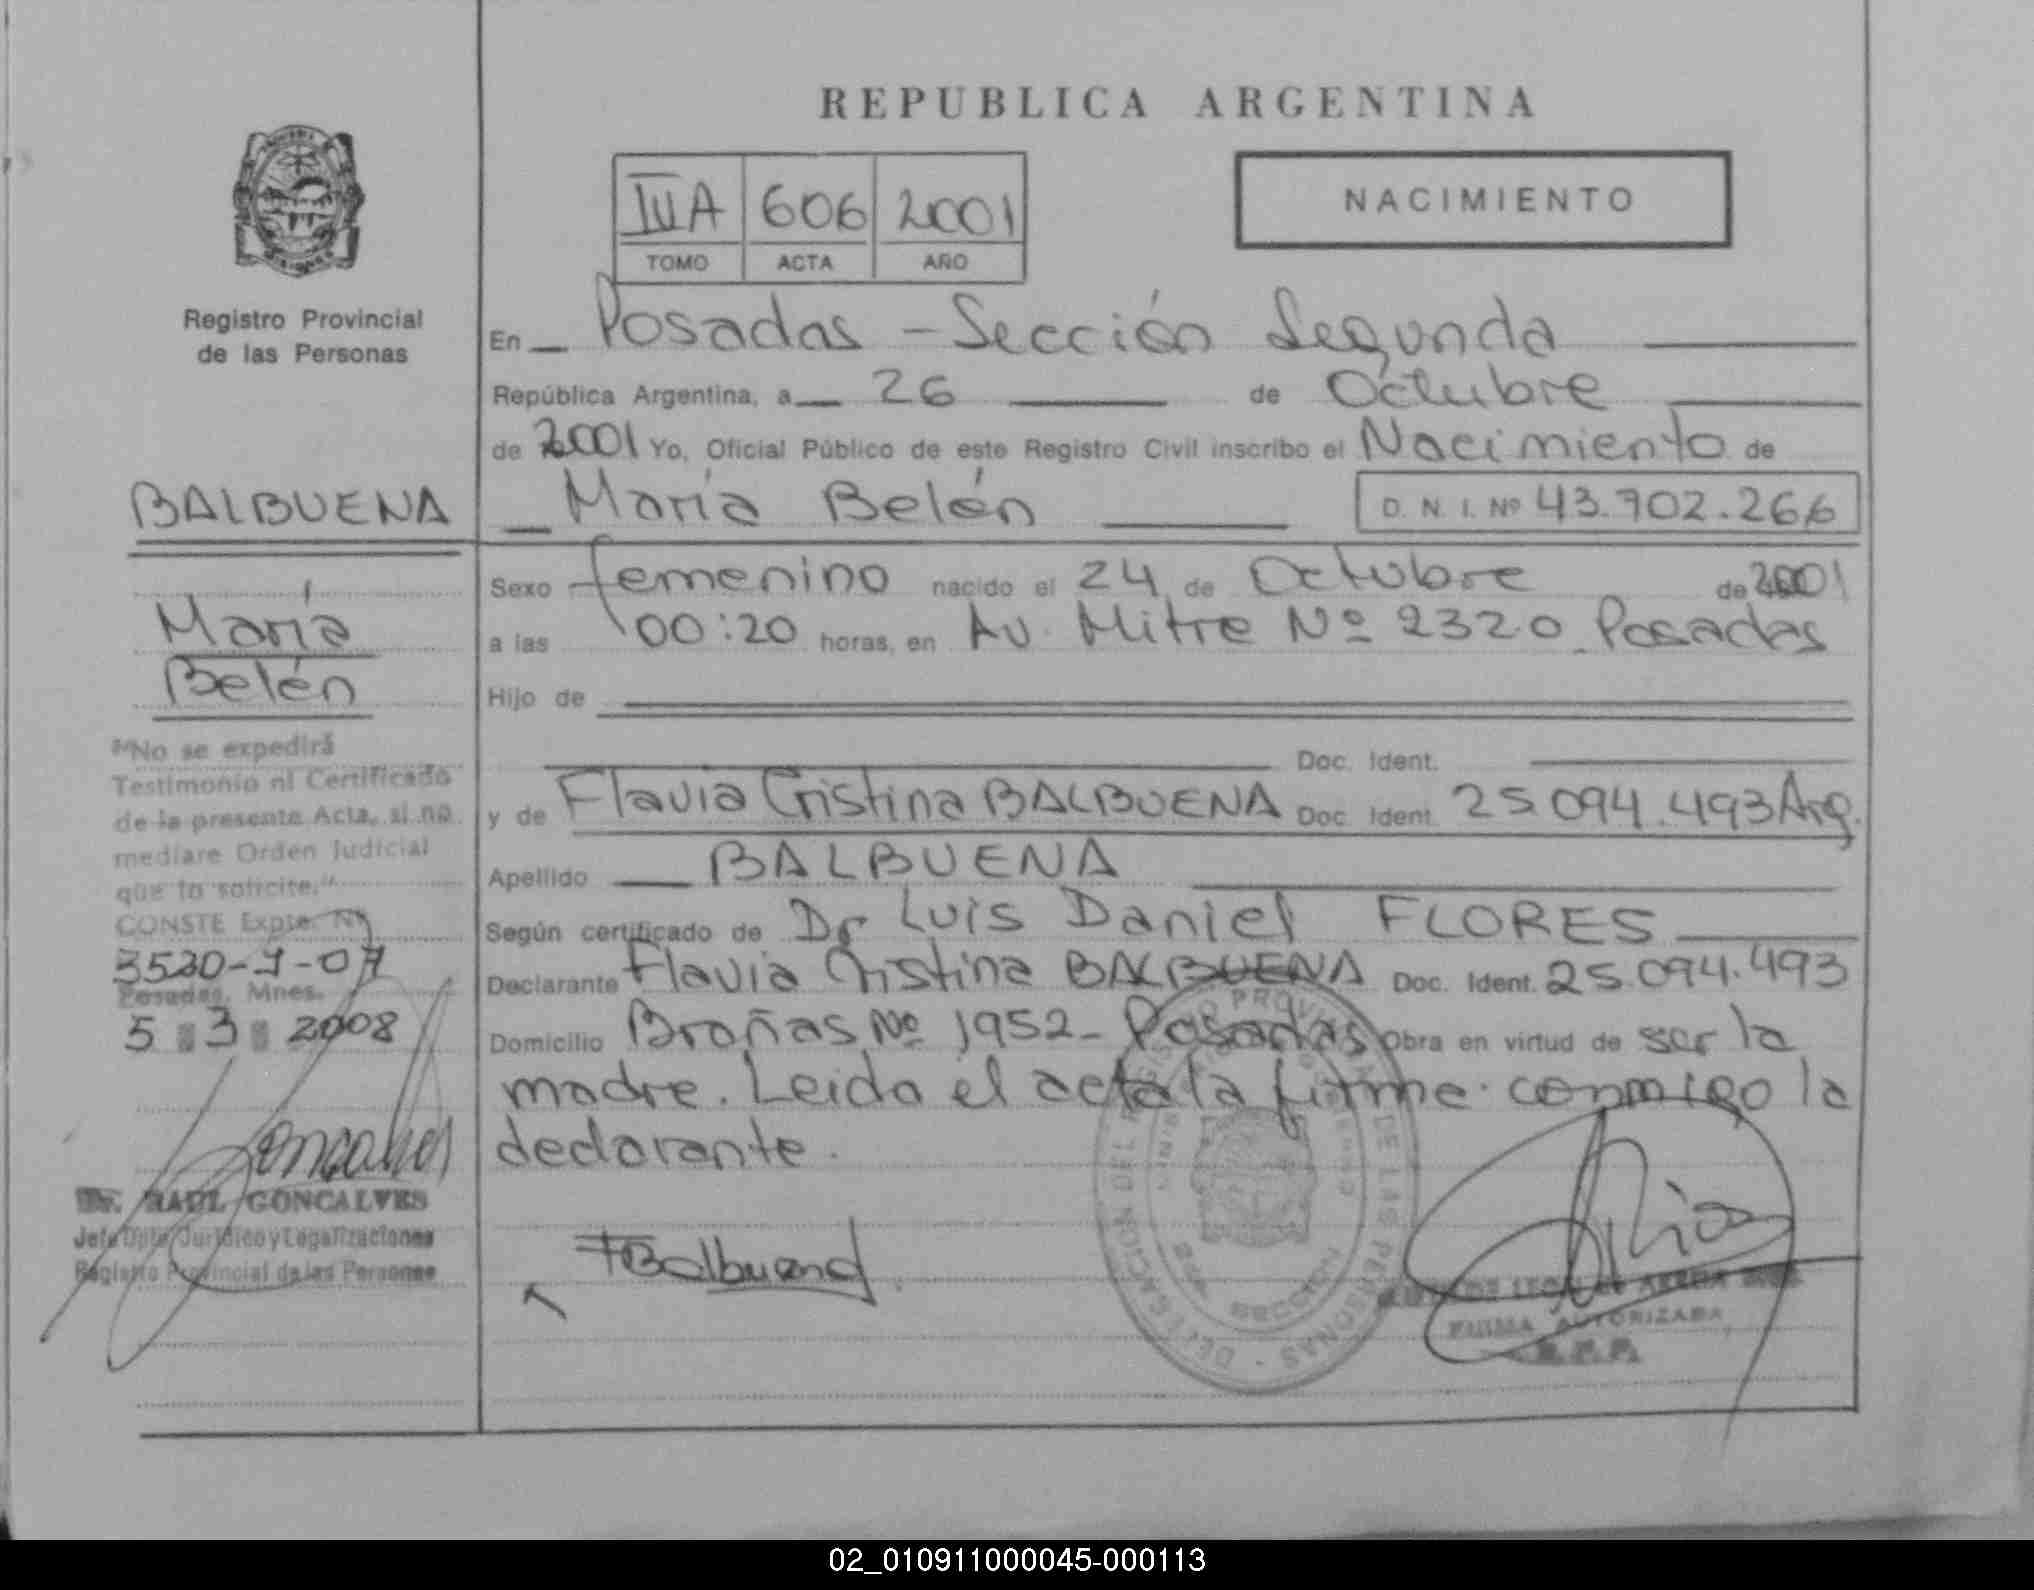 REPUBLICA ARGENTINA
IIIA 606 2001
TOMO ACTA AÑO
NACIMIENTO
Registro Provincial
de las Personas
En Posadas - Sección Segunda
República Argentina, a 26 de Octubre
de 2001 Yo, Oficial Público de este Registro Civil inscribo el Nacimiento de
María Belén D. N. I. Nº 43.702.266
Sexo femenino nacido el 24 de Octubre de 2001
a las 00:20 horas, en Av. Mitre Nº 2320 Posadas
Hijo de
Doc. Ident.
y de Flavia Cristina BALBUENA Doc. Ident. 25.094.493 Arg.
Apellido BALBUENA
Según certificado de Dr Luis Daniel FLORES
Declarante Flavia Cristina BALBUENA Doc. Ident. 25.094.493
Domicilio Brañas Nº 1952 - Posadas Obra en virtud de ser la
madre. Leida el acta la firma conmigo la
declarante.
FBalbuena
BALBUENA
María
Belén
"No se expedirá
Testimonio ni Certificado
de la presente Acta, si no
mediare Orden Judicial
que lo solicite."
CONSTE Expte. Nº
3530-J-07
Posadas, Mnes.
5 3 2008
Dr. RAUL GONCALVES
Jefe Dpto Jurídico y Legalizaciones
Registro Provincial de las Personas
DELEGACION DEL REGISTRO PROVINCIAL DE LAS PERSONAS
SECCION
FIRMA AUTORIZADA
R.P.P.
02_010911000045-000113